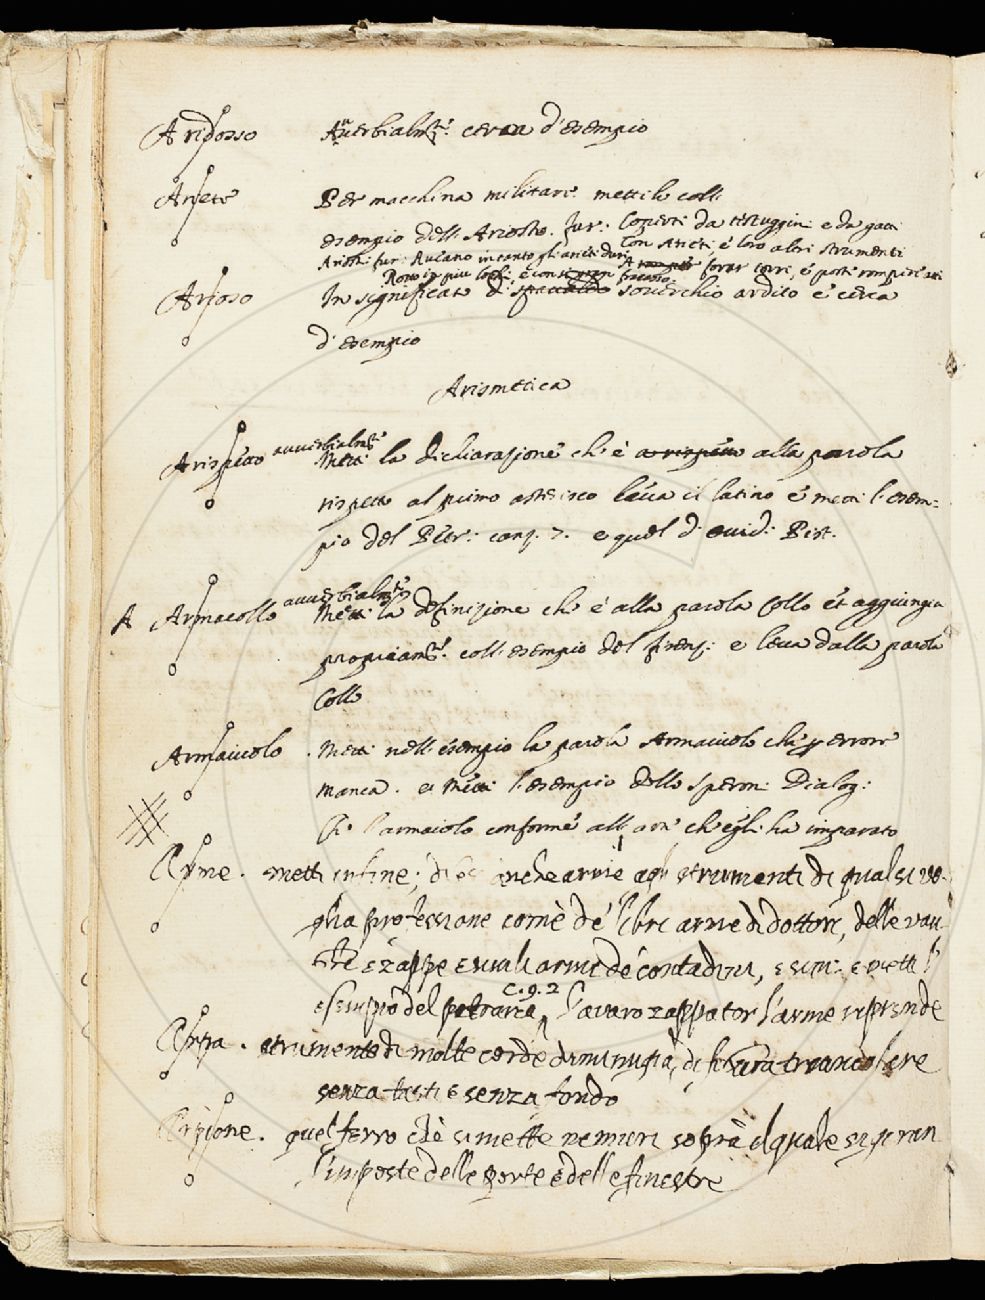 A ridosso Auuerbialm.te cerca d'esempio
Ariete Per macchina militare metti le coll
esempio dell Ariosto. fur: Coperti da testuggini e da gatti
Con Arieti, e loro altri strumenti
Ariost: fur: Aueano in tanto gli arieti duri
forar torri, e porte rompere
Rotto in piu lochi, e
Arioso In significato di spaualdo souerchio ardito e cerca
d'esempio
Arismetica
A rispetto auuerbialm.te Metti la dichiarazione ch' è a rispetto alla parola
rispetto al primo asterisco leua il latino e metti l'esem=
pio del Petr: canz. 7. e quel d' ouid: Pist.
A Armacollo auuerbialm.te Metti la definizione che è alla parola Collo et aggiungi
propriam.te coll esempio del firenz: e leua dalla parola
Collo
Armaiuolo . Metti nell esempio la parola Armaiuolo che p errore
manca. et Metti l'esempio dello Speron: Dialog:
l'armaiolo conforme all arte ch'egli ha imparato
Arme . metti in fine; anche arme agli strumenti di qual si uo-
glia professione come de' libri arme di dottori, delle van-
ghe e zappe e simili armi de' contadini, e sim: e metti l'
esempio del petrarca c.9.2 l'auaro zappator l'arme riprende
Arpa . strumento di molte corde di minugia, di figura triangolare
senza tasti e senza fondo
Arpione . quel ferro che si mette ne muri sopra il quale si giran
l'imposte delle porte e delle finestre